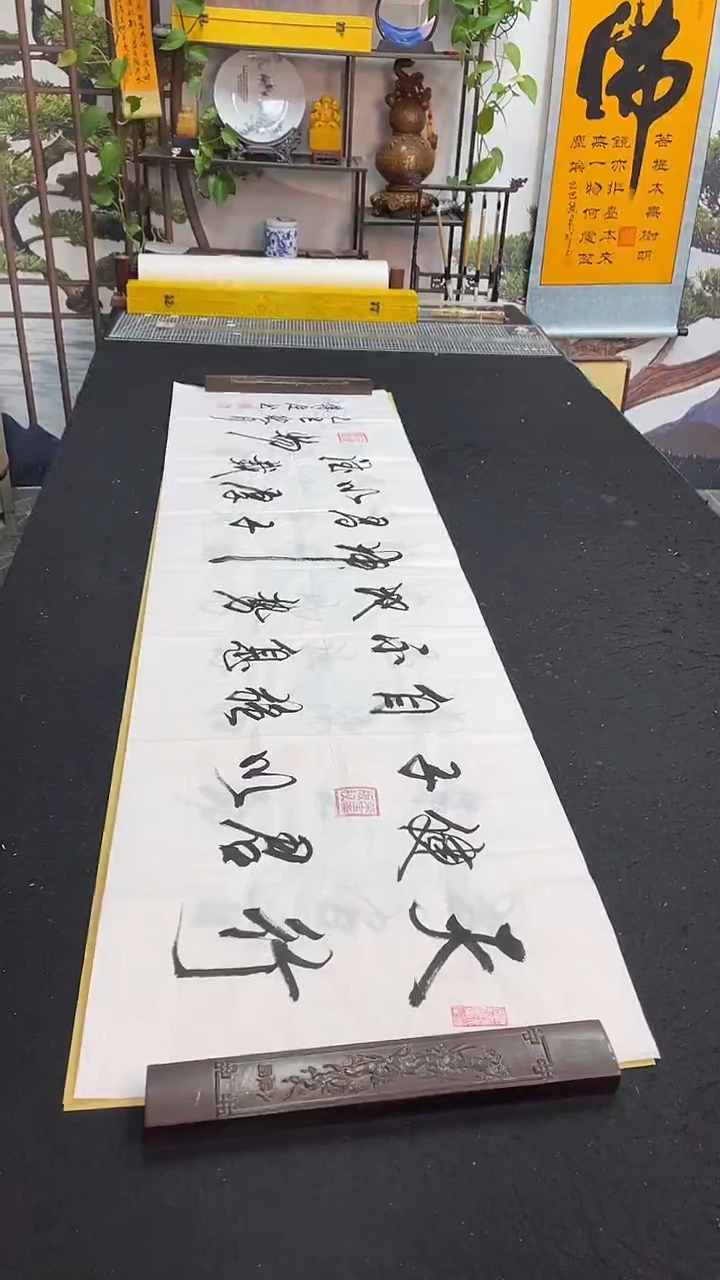 佛
菩提本無樹明
鏡亦非臺本來
無一物何處惹
塵埃
天行
健君
子以
自强
不息
地势
坤
君子
以厚
德载
物
乙巳秋月